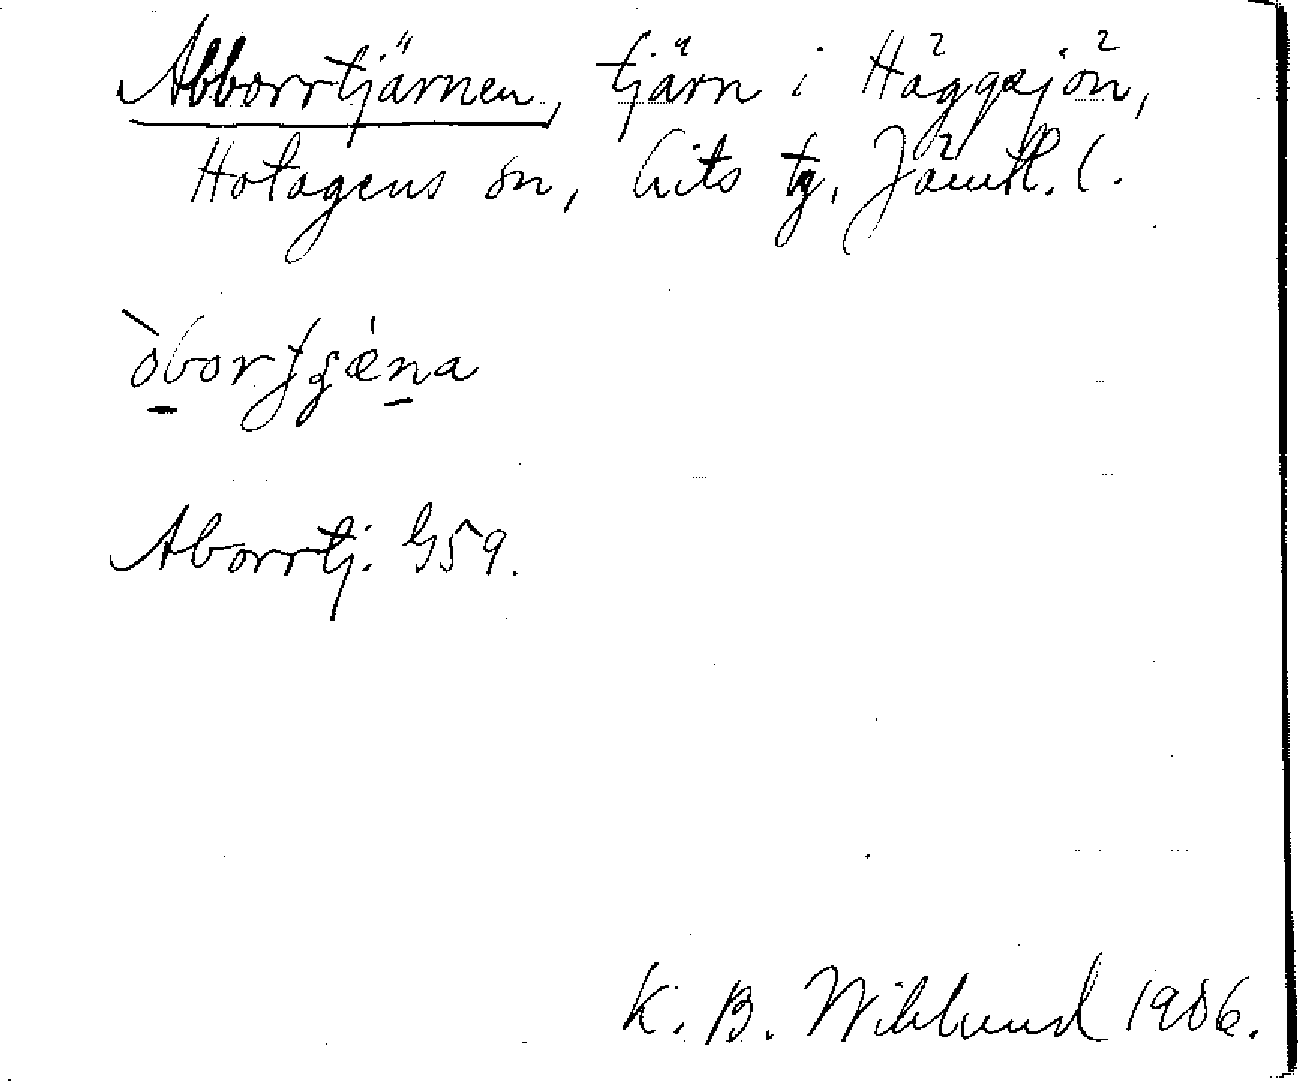 Abborrtjärnen, tjärn i Häggsjön,
Hotagens sn, Lits tg, Jämtl. l.
òbortʃæ̀na
Aborrtj. G59.
K. B. Wiklund 1906.